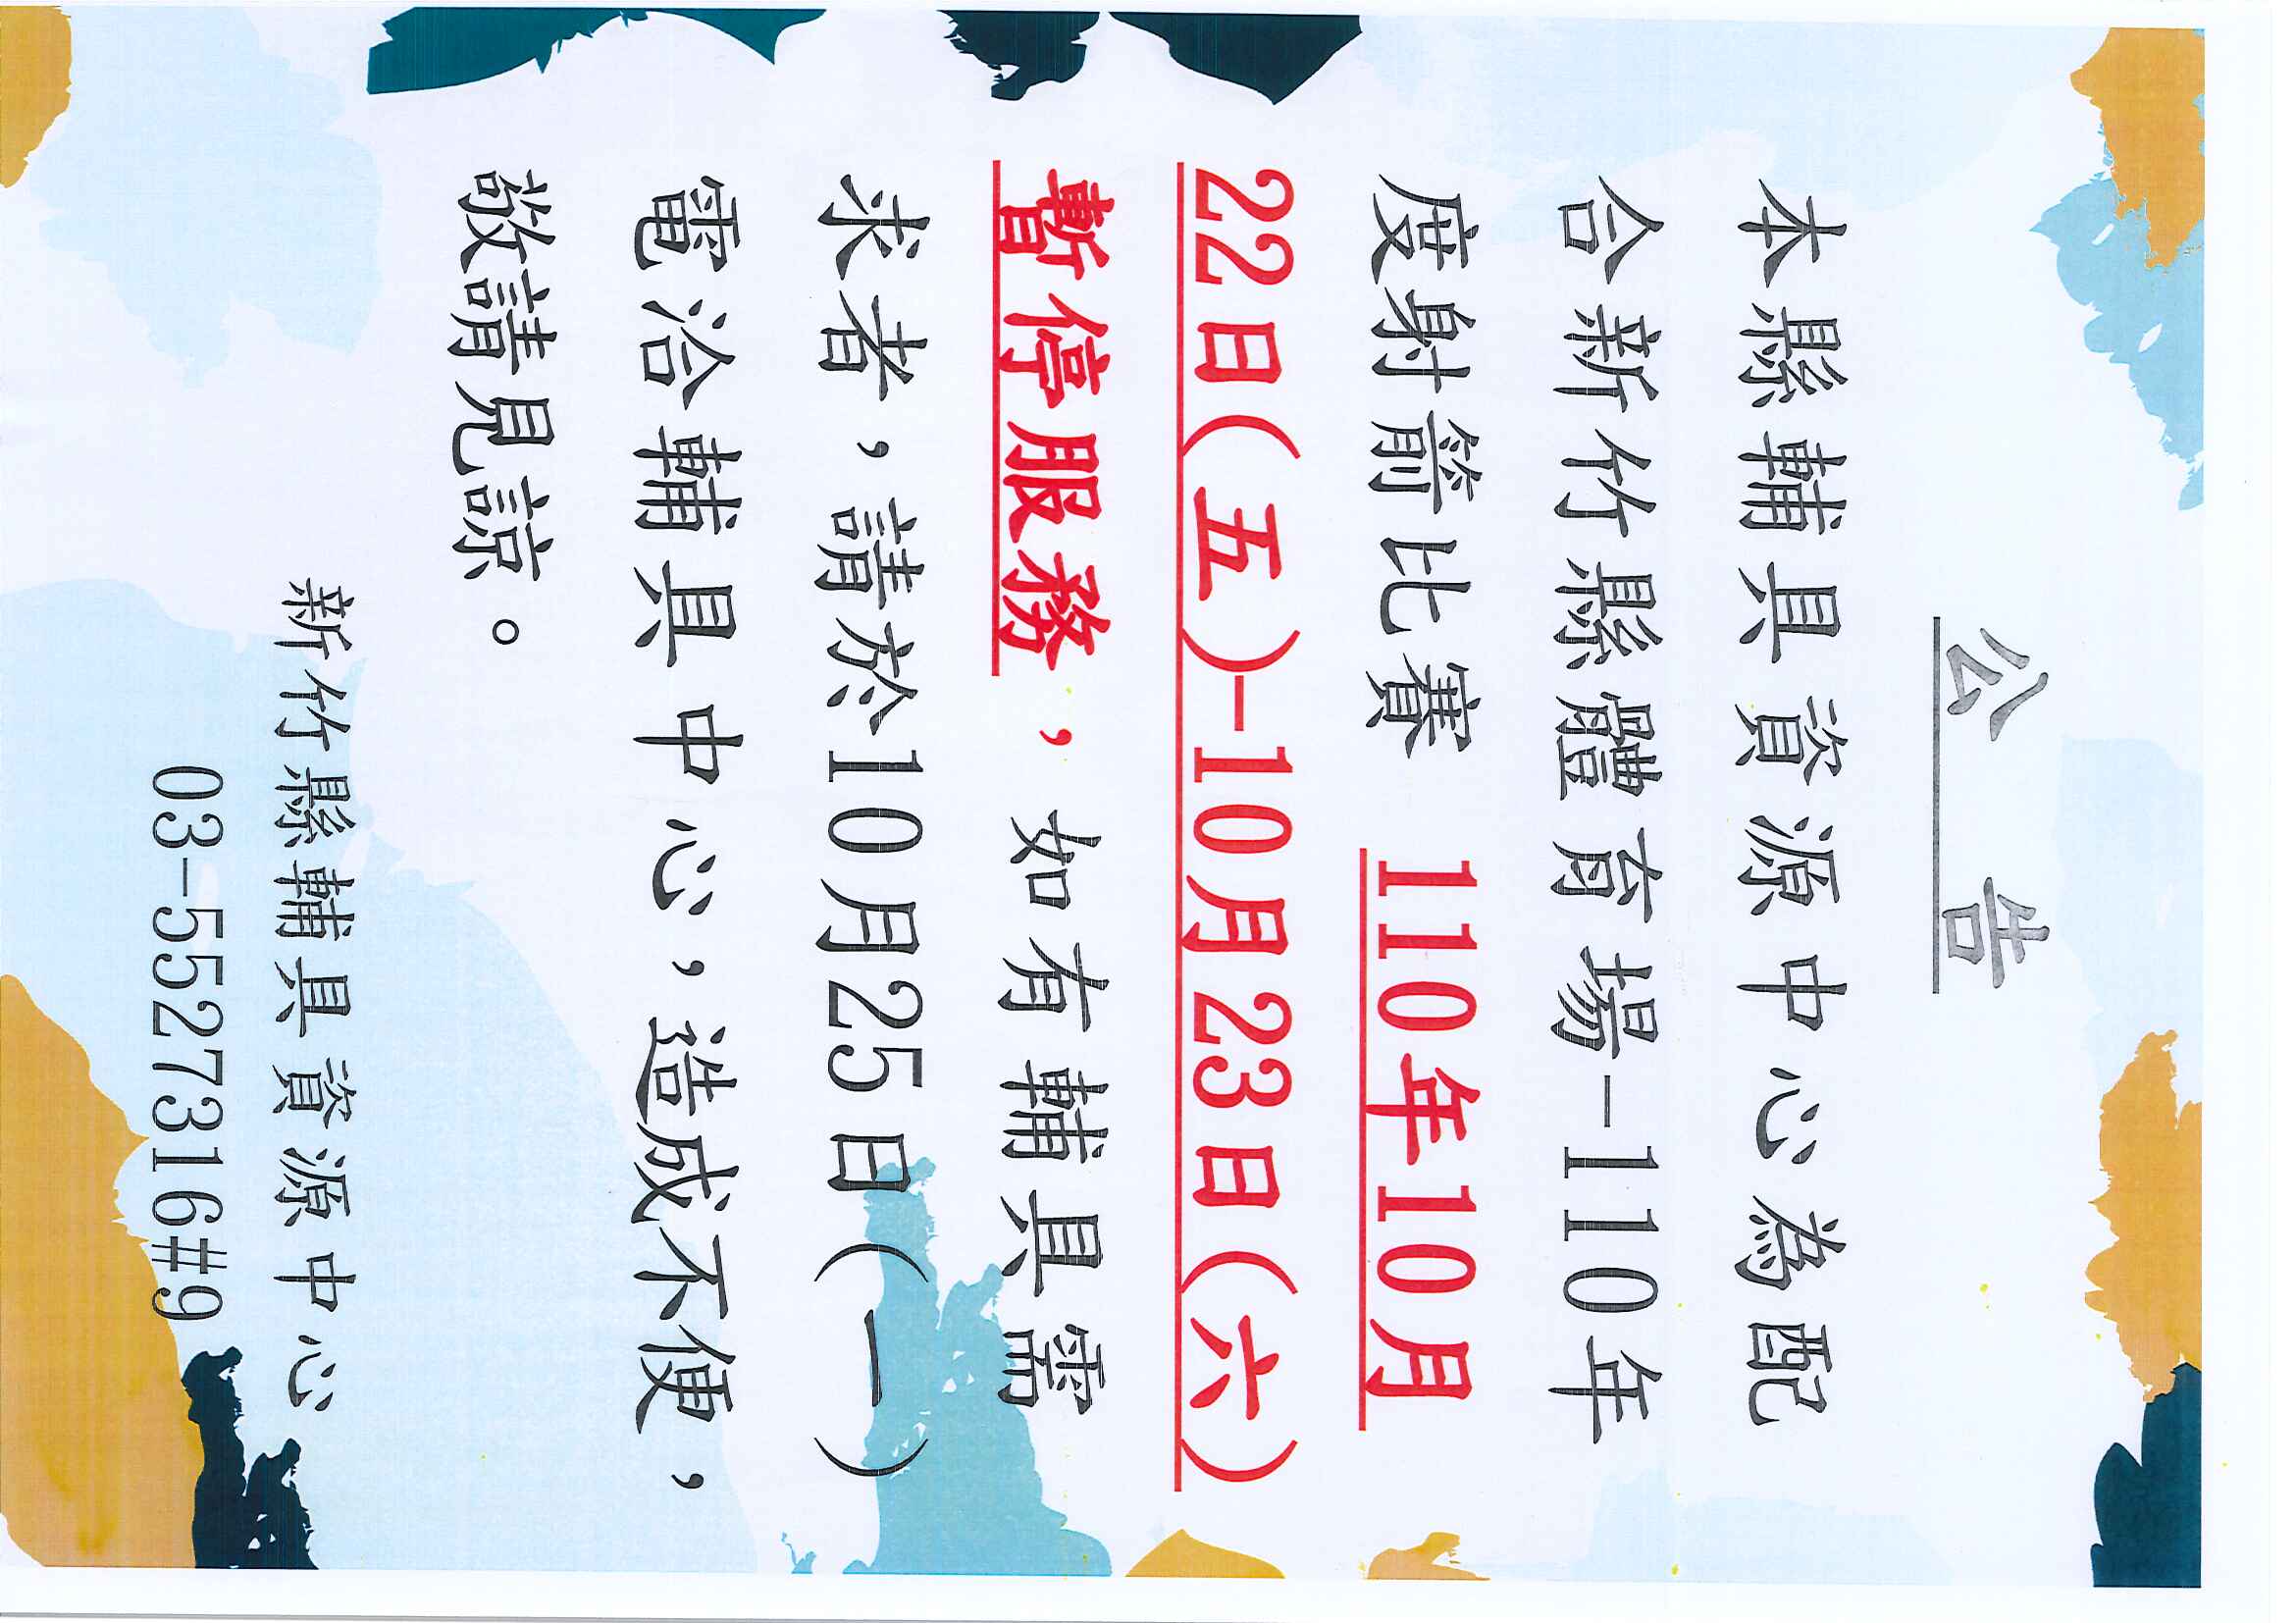 公 告
本縣輔具資源中心為配
合新竹縣體育場-110年
度射箭比賽 110年10月
22日(五)-10月23日(六)
暫停服務，如有輔具需
求者，請於10月25日(一)
電洽輔具中心，造成不便，
敬請見諒。
新竹縣輔具資源中心
03-5527316#9